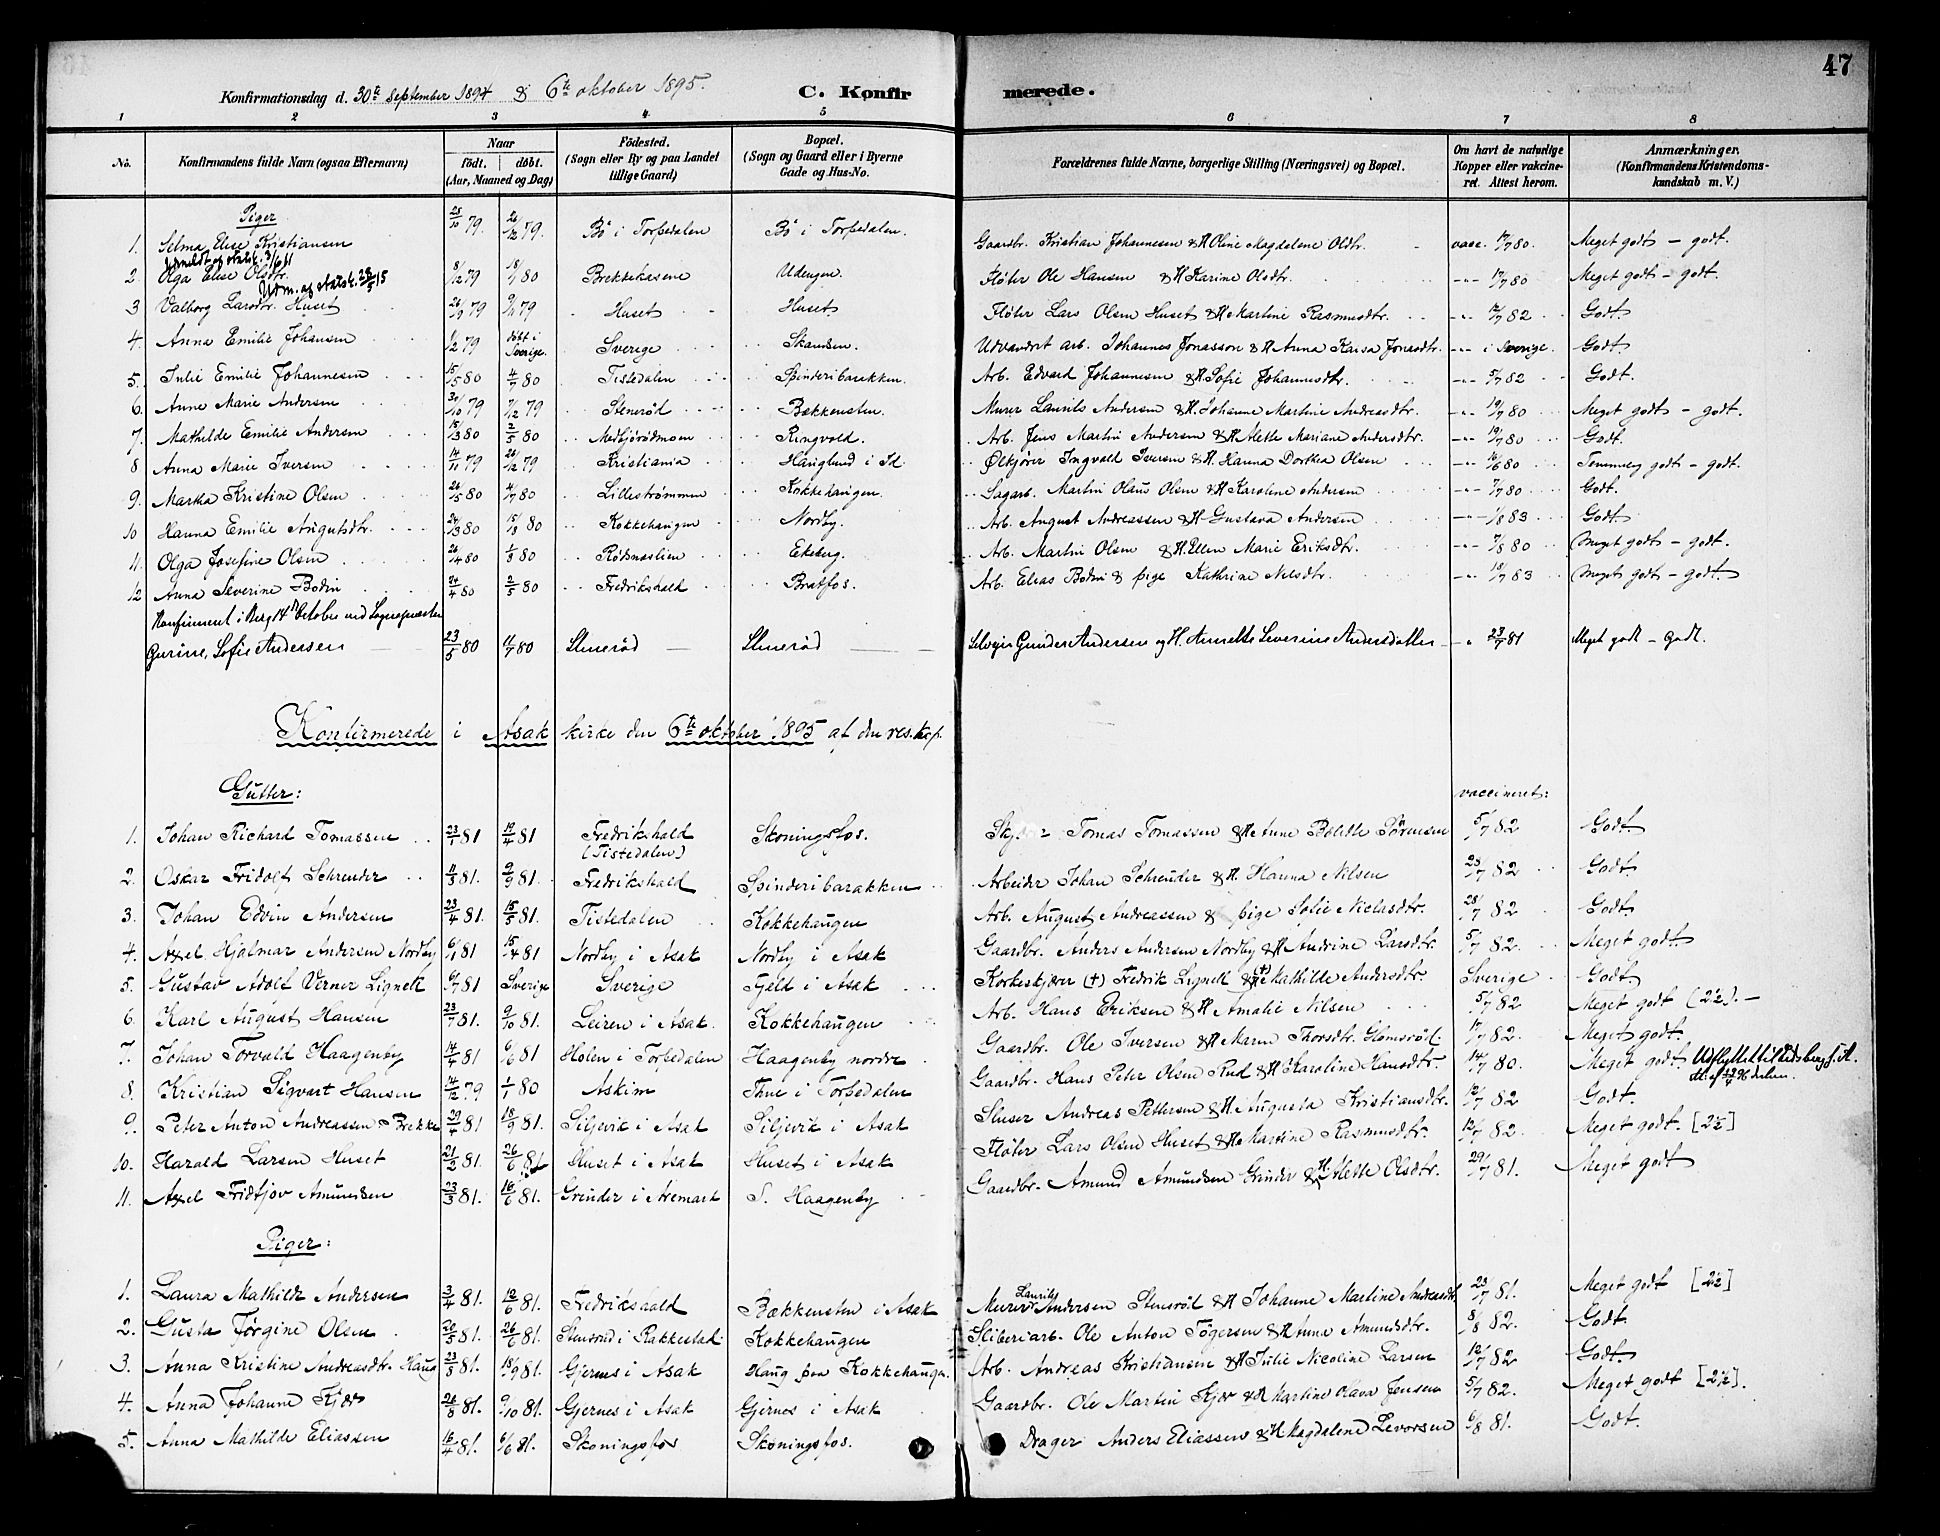 47
Konfirmationsdag d. 30te September 1894 & 6te oktober 1895. C. Konfirmerede.
1 2 3 4 5 6 7 8
No. Konfirmandens fulde Navn (ogsaa Efternavn) Naar født. døbt. (Aar, Maaned og Dag) Fødested. (Sogn eller By og paa Landet tillige Gaard) Bopæl. (Sogn og Gaard eller i Byerne Gade og Hus-No. Forældrenes fulde Navne, borgerlige Stilling (Næringsvei) og Bopæl. Om havt de naturlige Kopper eller vakcineret. Attest herom. Anmærkninger. (Konfirmandens Kristendomskundskab m. V.)
Piger
1. Selma Elise Kristiansen 25/10 79. 26/12 79. Bö i Torpedalen. Bö i Torpedalen. Gaardbr. Kristian Johannesen & H. Oline Magdalene Oldtr. vacc. 17/7 80. Meget godt – godt.
Udmeldt af statsk. 3/6 11
2 Olga Elise Olsdtr. 8/12 79 18/1 80 Brekkekasene Udengen. Fløter Ole Hansen & H. Karine Olsdtr. -„- 17/7 80 Meget godt – godt.
Udm. af statsk. 22/5 15
3 Valborg Larsdtr. Huset 26/9 79 9/11 79 Huset Huset. Fløter Lars Olsen Huset & H. Martine Rasmusdtr. -„- 12/7 82 Godt.
4. Anna Emilie Johansen 6/2 79 döbt i Sverige. Sverige Skandsen. Udvandret arb. Johannes Jonasson & H. Anna Kaisa Jonasdtr. -„- i Sverige. Godt.
5. Julie Emilie Johannesen 15/5 80 4/7 80 Tistedalen Spinderibarakken. Arb. Edvard Johannesen & H. Sofie Johannesdtr. -„- 5/7 82 Godt.
6. Anne Marie Andersen 30/10 79 7/12 79 Stenerød Bækkensten. Murer Laurits Andersen & H. Johanne Martine Andreasdtr. -„- 19/7 80 Meget godt – godt.
7. Mathilde Emilie Andersen 15/3 80 2/5 80 Ringvold. Arb. Jens Martin Andersen & H. Mette Mariane Andersdtr. -„- 19/7 80 Godt.
8 Anna Marie Iversen 14/11 79 26/12 79 Kristiania Hauglund i Id. Ølkjører Ingvald Iversen & H. Hanna Dorthea Olsen -„- 16/6 80 Temmeleg godt – godt.
9. Martha Kristine Olsen 26/5 80 4/7 80 Lillestrømmen Kokkehaugen. Sagarb. Martin Olaus Olsen & H. Karoline Andersen -„- 7/7 80 Godt.
10 Hanna Emilie Augustdtr. 24/3 80 15/8 80 Kokkehaugen Nordby. Arb. August Andreassen & H. Gustava Andersen -„- 1/8 83 Godt.
11. Olga Josefine Olsen 26/4 80 1/8 80 Rødsnæslien Ekeberg. Arb. Martin Olsen & H. Ellen Marie Eriksdtr. -„- 7/8 80 Meget godt – godt.
12 Anna Severine Bodin 24/4 80 2/5 80 Fredrikshald Bratfos. Arb. Elias Bodin & pige Kathrine Nilsdtr. -„- 18/7 83 Meget godt – godt.
Konfirmeret i Berg 14de October ved Sognepræsten
Gurine, Sofie Andersen 23/5 80 11/7 80 Stenerød Stenerød Selveyer Gunder Andersen og H. Annette Severine Andersdatter -„ 23/7 81 Meget godt – Godt.
Konfirmerede i Asak kirke den 6te oktober 1895 af den res. kap.
Gutter: vaccineret:
1. Johan Richard Tomassen 23/1 81 19/4 81 Fredrikshald (Tistedalen) Skoningsfos. Tomas Tomassen & H. Anne Bolette Sörensen 5/7 82 Godt.
2. Oskar Fridolf Schreuder 11/3 81. 2/9 81. Fredrikshald Spinderibarakken Arbeider Johan Schreuder & H. Hanna Nilsen 28/7 82 Godt.
3. Johan Edvin Andersen 23/4 81. 15/5 81. Tistedalen Kokkehaugen Arb. August Andreassen & pige Sofie Niclasdtr. 28/7 82 Godt
4. Axel Hjalmar Andersen Nordby 6/1 81 15/4 81 Nordby i Asak Nordby i Asak Gaardbr. Anders Andersen Nordby & H. Andrine Larsdtr. 5/7 82. Meget godt
5. Gustav Adolf Verner Lignell 6/7 81 Sverige Sverige Fjeld i Asak Korkeskjærer (†) Fredrik Lignell & H. (†) Mathilde Andersdtr. Sverige Godt.
6. Karl August Hansen 23/7 81. 9/10 81. Leiren i Asak. Kokkehaugen Arb. Hans Eriksen & H. Amalie Nilsen 5/7 82 Meget godt (2½). –
7. Johan Torvald Haagenby 14/4 81 6/6 81 Holen i Torpedalen Haagenby nordre Gaardbr. Ole Iversen & H. Maren Thorsdtr. Glomsrød. 17/7 82. Meget godt.
8. Kristian Sigvart Hansen 14/12 79 1/1 80 Askim Thue i Torpedalen Gaardbr. Hans Peter Olsen Rud & H. Karoline Hansdtr. 14/7 80. Meget godt. Udflyttet til Eidsberg
9. Peter Anton Andreassen Brekke 29/4 81 18/9 81. Siljevik i Asak Siljevik i Asak Sluser Andreas Pettersen & H. Augusta Kristiansdtr. 12/7 82 Godt.
10. Harald Larsen Huset 21/2 81. 26/6 81 Huset i Asak Huset i Asak Fløter Lars Olsen Huset & H. Martine Rasmusdtr. 12/7 82. Meget godt. [2½]
11. Axel Fridtjov Amundsen 23/3 81. 16/6 81. Grinder i Aremark S. Haagenby Gaardbr. Amund Amundsen Grinder & H. Mette Olsdtr. 29/7 81. Meget godt
Piger:
1. Laura Mathilde Andersen 3/4 81. 12/6 81. Fredrikshald Bækkensten i Asak Murer Laurits Andersen Stensrød & H. Johanne Martine Andreasdtr. 23/7 81. Meget godt [2½]
2. Gusta Jørgine Olsen 20/5 81. 26/6 81. Stensrud i Rakkestad Kokkehaugen Sliberiarb. Ole Anton Tögersen & H. Anne Amundsdtr. 8/8 82. Godt.
3. Anna Kristine Andreasdtr. Haug 23/8 81. 18/9 81. Gjernes i Asak Haug paa Kokkehaugen. Arb. Andreas Kristiansen & H. Julie Nicoline Larsen 12/7 82 Godt.
4. Anna Johanne Kjær 26/8 81. 9/10 81. Gjernes i Asak Gjernes i Asak Gaardbr. Ole Martin Kjær & H. Martine Olava Jensen 5/7 82. Meget godt [2½].
5. Anna Mathilde Eliassen 16/4 81. 6/6 81. Skoningsfos Skoningsfos. Drager Anders Eliassen & H. Magdalene Levorsen 6/8 81. Godt.